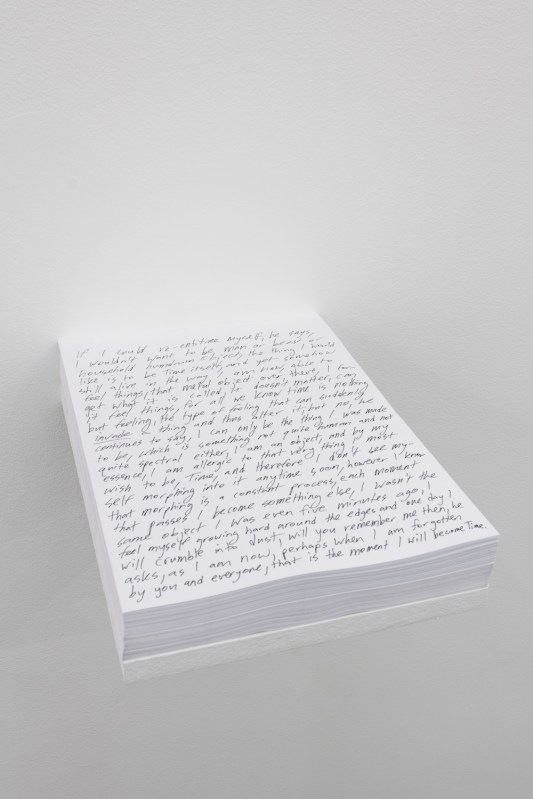 If I could re-entitize myself, he says,
I wouldn't want to be man or beast or
household humdrum object, the thing I would
like is to be time itself, and yet somehow
still alive in the way I am now, able to
feel things, that metal object over there, I for-
get what it is called, it doesn't matter, can
it feel things, for all we know time is nothing
but feeling, the type of feeling that can suddenly
invade a thing and thus alter it, but no, he
continues to say, I can only be the thing I was made
to be, which is something not quite human and not
quite spectral either, I am an object, and by my
essence, I am allergic to that very thing I most
wish to be, Time, and therefore I don't see my-
self morphing into it anytime soon, however I know
that morphing is a constant process, each moment
that passes I become something else, I wasn't the
same object I was even five minutes ago, I
feel myself growing hard around the edges and one day I
will crumble into dust, will you remember me then, he
asks, as I am now, perhaps when I am forgotten
by you and everyone, that is the moment I will become Time.